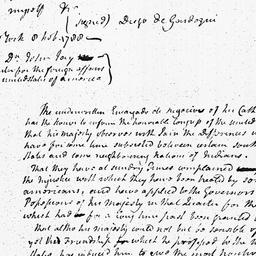 myself &c
(signed) Diego de Gardoqui
York 8 feb. 1788
Dn. John Jay
for the foreign affairs
united states of america
The underwritten Encargado de negocios of his Cath
has the honor to inform the honorable congress of the united
that his majesty observes with pain the differences
have for some time subsisted between certain south
States and some neighbouring nations of Indians.
That they have at sundry times complained
the injustice with which they have been treated by so
americans, and have applied to the Governors
Possessions of his Majesty in that Quarter for
which had for a long time past been granted
That altho his majesty could not but be sensible of
yet that Friendship which he professed to the
States, has induced him to give the most